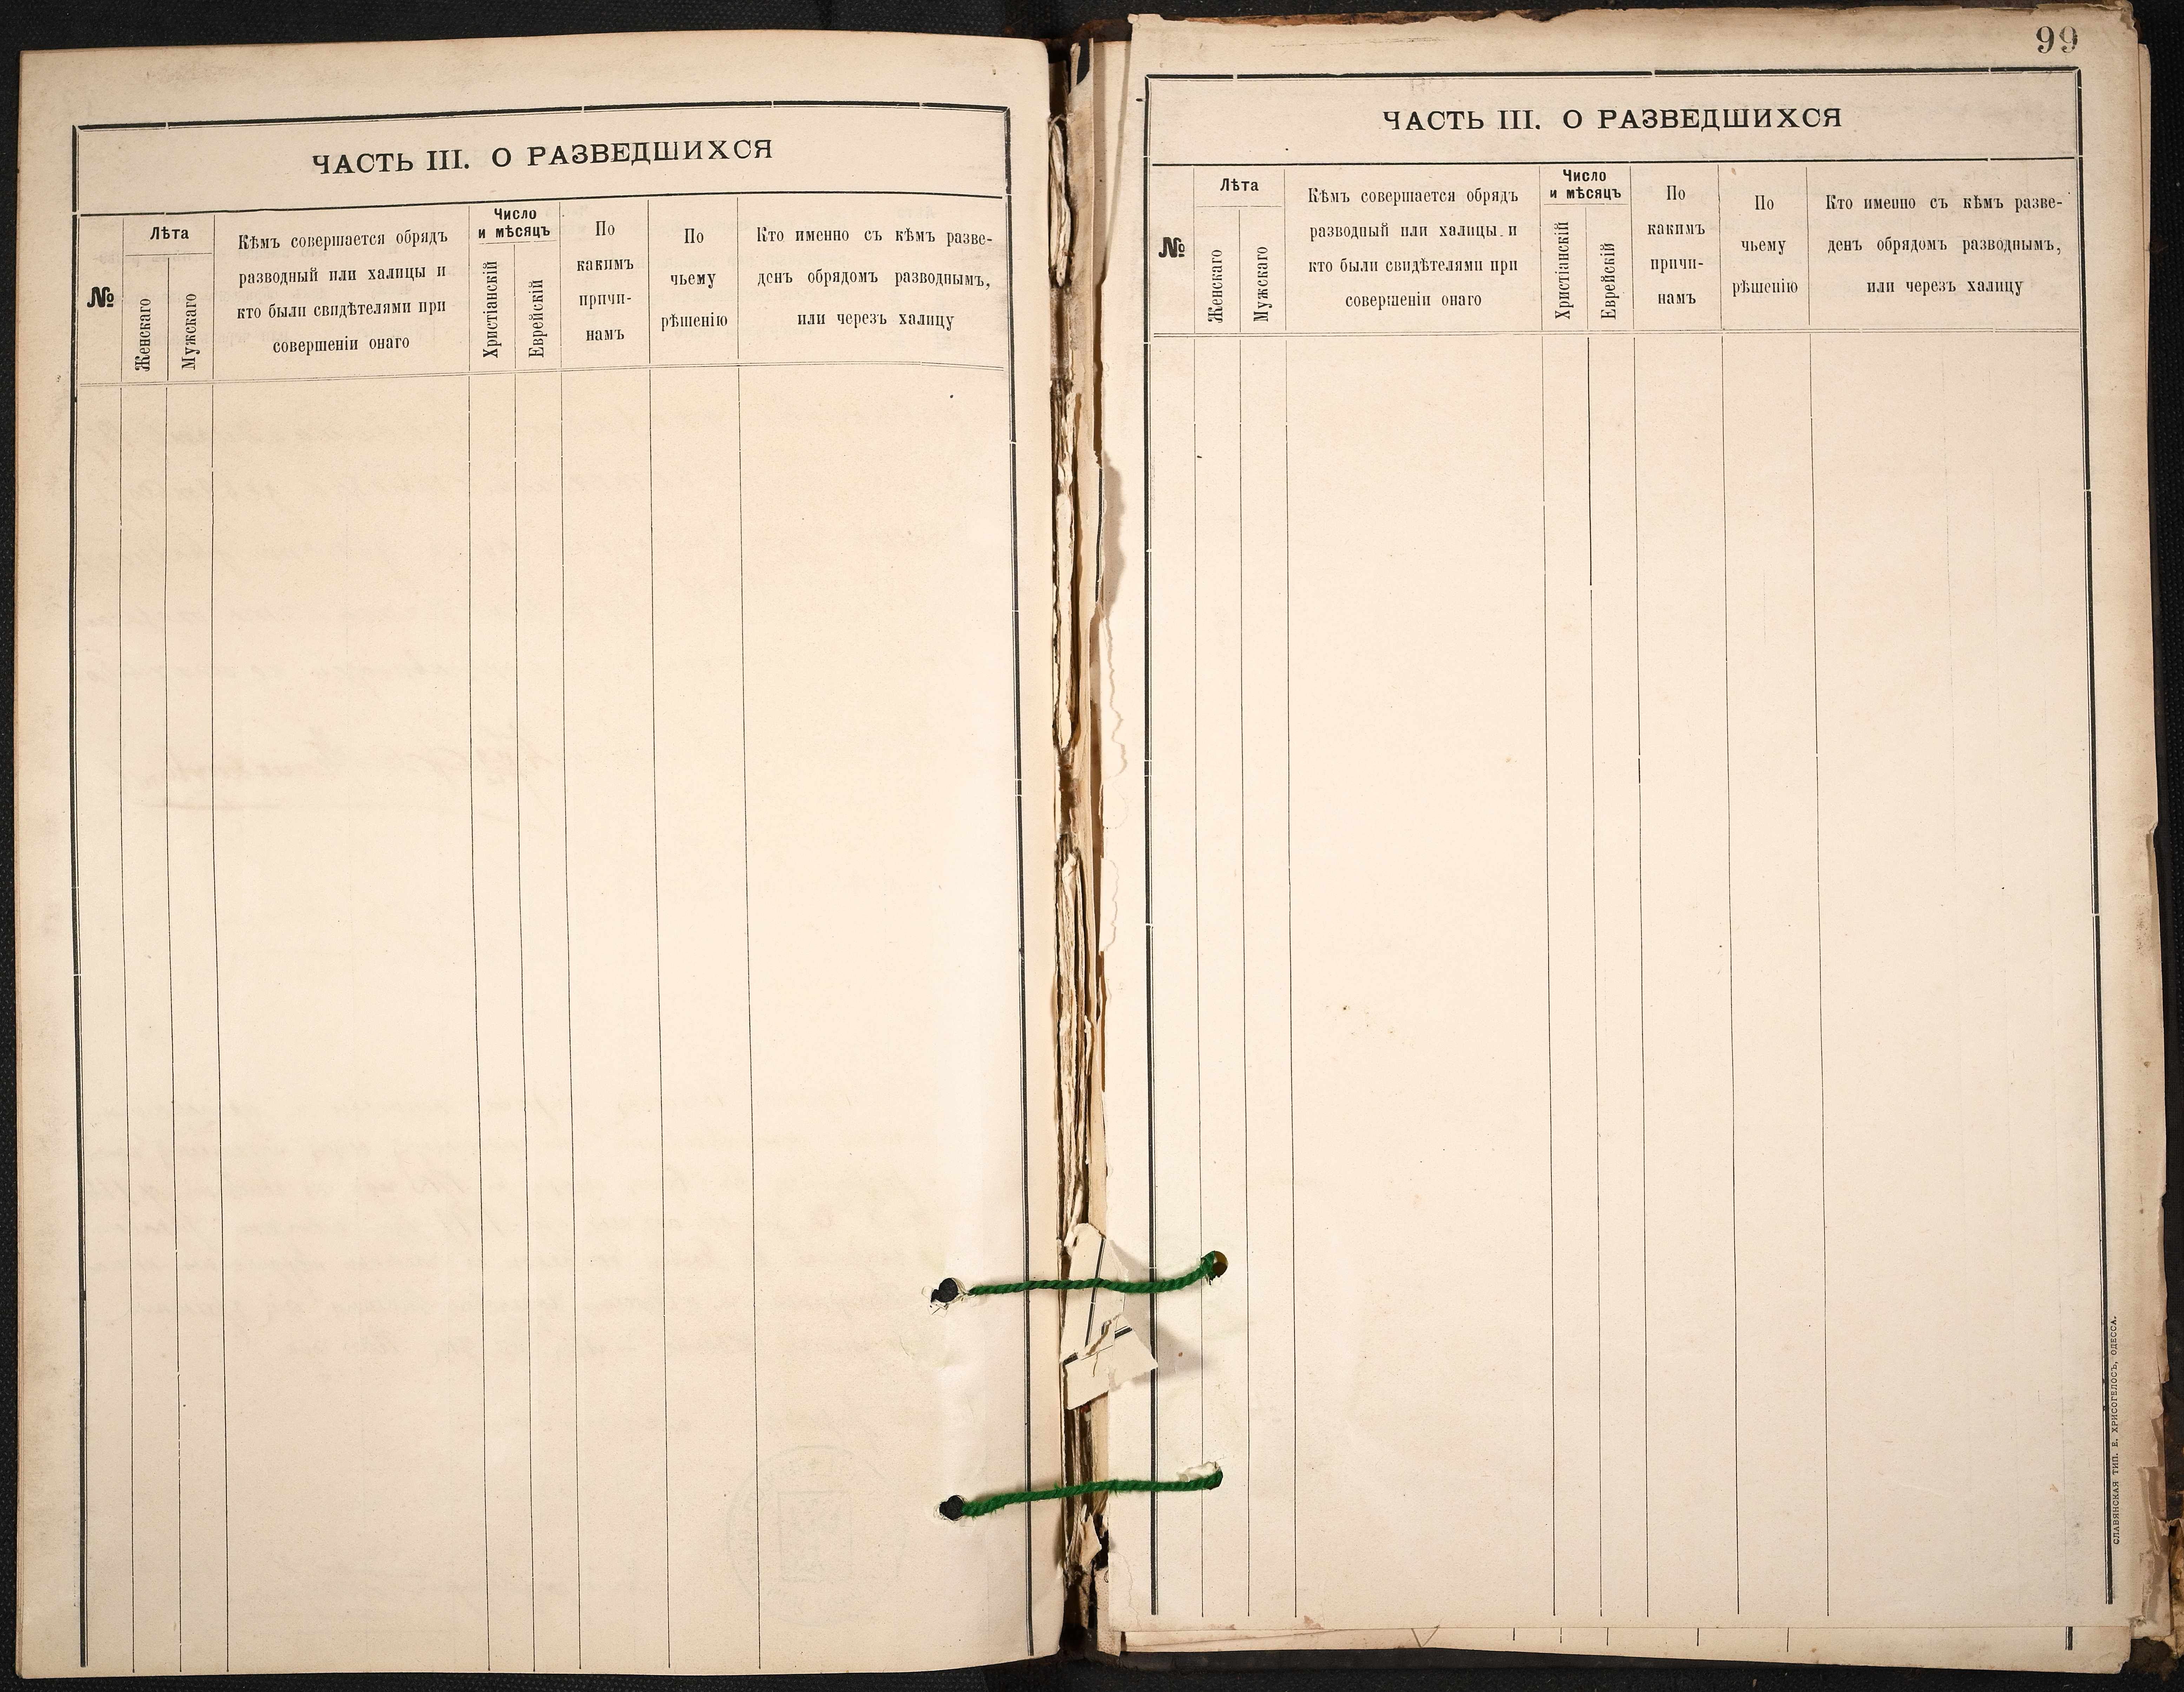 ЧАСТЬ III. О РАЗВЕДШИХСЯ
№
Лѣта
Женскаго
Мужскаго
Кѣмъ совершается обрядъ
разводный или халицы и
кто были свидѣтелями при
совершеніи онаго
Число
и мѣсяцъ
Христіанскій
Еврейскій
По
какимъ
причи-
намъ
По
чьему
рѣшенію
Кто именно съ кѣмъ разве-
денъ обрядомъ разводнымъ,
или черезъ халицу
99
ЧАСТЬ III. О РАЗВЕДШИХСЯ
№
Лѣта
Женскаго
Мужскаго
Кѣмъ совершается обрядъ
разводный или халицы и
кто были свидѣтелями при
совершеніи онаго
Число
и мѣсяцъ
Христіанскій
Еврейскій
По
какимъ
причи-
намъ
По
чьему
рѣшенію
Кто именно съ кѣмъ разве-
денъ обрядомъ разводнымъ,
или черезъ халицу
СЛАВЯНСКАЯ ТИП. Е. ХРИСОГЕЛОСЪ, ОДЕССА.